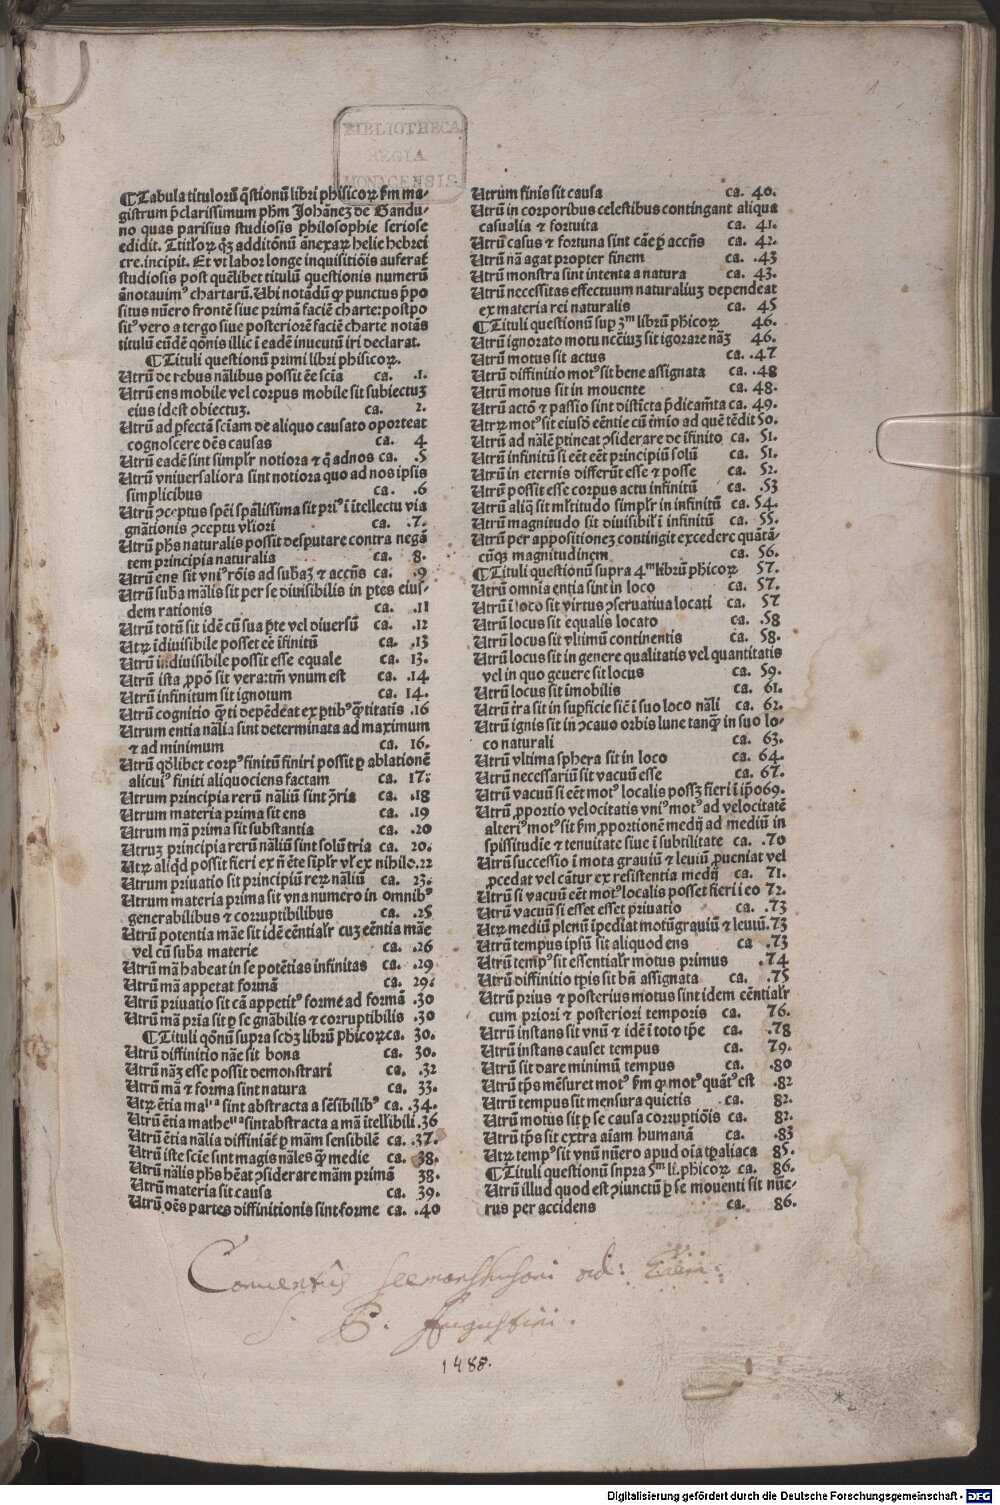 BIBLIOTHECA
REGIA
MONACENSIS.
¶Tabula titulorū q̄stionū libri phisicoꝝ ẜm ma-
gistrum p̄clarissimum ph̄m Johānez de Gandu-
no quas parisius studiosis philosophie seriose
edidit. Ttitl'oꝝ qꝫ additōnū ānexaꝝ helie hebrei
cre. incipit. Et vt labor longe inquisitiōis auferat̄
studiosis post quēlibet titulū questionis numerū
ānotauimꝰ chartarū. Ubi notādū ꝙ punctus p̄po
situs nūero frontē siue primā faciē charte: postpo
sitꝰ vero a tergo siue posteriorē faciē charte notās
titulū eūdē qōnis illic ī eadē inuētū iri declarat.
¶Tituli questionū primi libri phisicoꝝ.
Utrū de rebus nālibus possit eē scīa ca. .1.
Utrū ens mobile vel corpus mobile sit subiectuꝫ
eius idest obiectuꝫ. ca. 2.
Utrū ad ꝑfectā sciam de aliquo causato oporteat
cognoscere oēs causas ca. 4
Utrū eadē sint simplr̄ notiora ⁊ q̄ ad nos ca. .5
Utrū vniuersaliora sint notiora quo ad nos ipsis
simplicibus ca. .6
Utrū ꝯceptus spēi spālissima sit priꝰ ī itellectu via
gnātionis ꝯceptu vl'iori ca. .7.
Utrū ph̄s naturalis possit desputare contra negā
tem principia naturalia ca. 8.
Utrū ens sit vniꝰ rōis ad subaꝫ ⁊ accn̄s ca. .9
Utrū suba mālis sit per se diuisibilis in ꝑtes eius-
dem rationis ca. .11
Utrū totū sit idē cū sua ꝑte vel diuersū ca. .12
Utꝝ īdiuisibile posset eē īfinitū ca. .13
Utrū indiuisibile possit esse equale ca. 13.
Utrū ista ꝓpō sit vera: tm̄ vnum est ca. .14
Utrū infinitum sit ignotum ca. 14.
Utrū cognitio q̄ti depēdeat ex ꝑtibꝰ q̄titatis .16
Utrum entia nālia sint determinata ad maximum
⁊ ad minimum ca. 16.
Utrū qōlibet corpꝰ finitū finiri possit ꝑ ablationē
alicuiꝰ finiti aliquociens factam ca. 17.
Utrum principia rerū nāliū sint ꝯria ca. .18
Utrum materia prima sit ens ca. .19
Utrum mā prima sit substantia ca. .20
Utruꝫ principia rerū nāliū sint solū tria ca. 20.
Utꝝ aliqd possit fieri ex n̄ ēte sīplr̄ vl' ex nihilo. .22
Utrum priuatio sit principiū reꝝ nāliū ca. 23.
Utrum materia prima sit vna numero in omnibꝰ
generabilibus ⁊ corruptibilibus ca. .25
Utrū potentia māe sit idē eēntialr̄ cuꝫ eēntia māe
vel cū suba materie ca. .26
Utrū mā habeat in se potētias infinitas ca. .29
Utrū mā appetat formā ca. 29.
Utrū priuatio sit cā appetitꝰ forme ad formā .30
Utrū mā pria sit ꝑ se gnābilis ⁊ corruptibilis .30
¶Tituli qōnū supra scd̄ꝫ librū ph̄icoꝝ ca. 30.
Utrū diffinitio nāe sit bona ca. 30.
Utrū nāꝫ esse possit demonstrari ca. .32
Utrū mā ⁊ forma sint natura ca. 33.
Utꝝ ētia maˡⁱᵃ sint abstracta a sēsibilibꝰ ca. .34.
Utrū ētia matheˡⁱᵃ sint abstracta a mā itellibili .36
Utrū ētia nālia diffiniāt̄ ꝑ mām sensibilē ca. .37.
Utrū iste scīe sint magis nāles q̄ medie ca. .38.
Utrū nālis ph̄s hēat ꝯsiderare mām primā 38.
Utrū materia sit causa ca. 39.
Utrū oēs partes diffinitionis sint forme ca. .40
Utrum finis sit causa ca. 40.
Utrū in corporibus celestibus contingant aliqua
casualia ⁊ fortuita ca. 41.
Utrū casus ⁊ fortuna sint cāe ꝑ accn̄s ca. 42.
Utrū nā agat propter finem ca. .43
Utrū monstra sint intenta a natura ca. 43.
Utrū necessitas effectuum naturaliuꝫ dependeat
ex materia rei naturalis ca. 45
¶Tituli questionū sup 3ᵐ librū ph̄icoꝝ 46.
Utrū ignorato motu nc̄eiuꝫ sit igorare nāꝫ 46.
Utrū motus sit actus ca. .47
Utrū diffinitio motꝰ sit bene assignata ca. .48
Utrū motus sit in mouente ca. 48.
Utrū actō ⁊ passio sint distīcta p̄dicam̄ta ca. 49.
Utꝝ motꝰ sit eiusdē eēntie cū īmio ad quē tēdit 50.
Utrū ad nālē ꝑtineat ꝯsiderare de īfinito ca. 51.
Utrū infinitū si eēt eēt principiū solū ca. 51.
Utrū in eternis differūt esse ⁊ posse ca. 52.
Utrū possit esse corpus actu infinitū ca. .53
Utrū aliq̄ sit ml'titudo simplr̄ in infinitū ca. 54.
Utrū magnitudo sit diuisibil' ī infinitū ca. 55.
Utrū per appositionez contingit excedere quātā-
cūqꝫ magnitudinem ca. 56.
¶Tituli questionū supra 4ᵐ librū ph̄icoꝝ 57.
Utrū omnia entia sint in loco ca. 57.
Utrū ī loco sit virtus ꝯseruatiua locati ca. 57
Utrū locus sit equalis locato ca. .58
Utrū locus sit vltimū continentis ca. 58.
Utrū locus sit in genere qualitatis vel quantitatis
vel in quo geuere sit locus ca. 59.
Utrū locus sit īmobilis ca. 61.
Utrū īra sit in suꝑficie sic̄ ī suo loco nāli ca. 62.
Utrū ignis sit in ꝯcauo orbis lune tanq̄ in suo lo-
co naturali ca. 63.
Utrū vltima sphera sit in loco ca. 64.
Utrū necessariū sit vacuū esse ca. 67.
Utrū vacuū si eēt motꝰ localis possꝫ fieri ī ip̄o 69.
Utrū ꝓportio velocitatis vniꝰ motꝰ ad velocitatē
alteriꝰ motꝰ sit ẜm ꝓportionē medij ad mediū in
spissitudie ⁊ tenuitate siue ī subtilitate ca. .70
Utrū successio ī mota grauiū ⁊ leuiū ꝓueniat vel
ꝓcedat vel cātur ex resistentia medij ca. 71.
Utrū si vacuū eēt motꝰ localis posset fieri ī eo 72.
Utrū vacuū si esset esset priuatio ca. .73
Utꝝ mediū plenū īpediat motū grauiū ⁊ leuiū. .73
Utrū tempus ipsū sit aliquod ens ca .73
Utrū tempꝰ sit essentialr̄ motus primus .74
Utrū diffinitio tp̄is sit bn̄ assignata ca. .75
Utrū prius ⁊ posterius motus sint idem eēntialr̄
cum priori ⁊ posteriori temporis ca. 76.
Utrū instans sit vnū ⁊ idē ī toto tp̄e ca. .78
Utrū instans causet tempus ca. 79.
Utrū sit dare minimū tempus ca. .80
Utrū tp̄s mēsuret motꝰ ẜm ꝙ motꝰ quātꝰ est .82
Utrū tempus sit mensura quietis ca. 82.
Utrū motus sit ꝑ se causa corruptiōis ca. 82.
Utrū tp̄s sit extra aiam humanā ca. .83
Utꝝ tempꝰ sit vnū nūero apud oīa tꝑaliaca 85.
¶Tituli questionū snpra 5ᵐ li. ph̄icoꝝ ca. 86.
Utrū illud quod est ꝯiunctū ꝑ se mouenti sit nūe-
rus per accidens ca. 86.
Conuentus Seemanshusani ord: Erem:
S. P. Augustini.
1488.
Digitalisierung gefördert durch die Deutsche Forschungsgemeinschaft - DFG